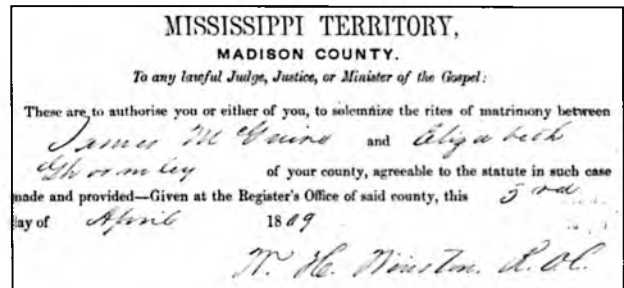 MISSISSIPPI TERRITORY,
MADISON COUNTY.
To any lawful Judge, Justice, or Minister of the Gospel:
These are to authorise you or either of you, to solemnize the rites of matrimony between
James McGuire and Elizabeth
Ghormley of your county, agreeable to the statute in such case
made and provided—Given at the Register's Office of said county, this 3rd
day of April 1809
W. H. Winston. R.O.C.